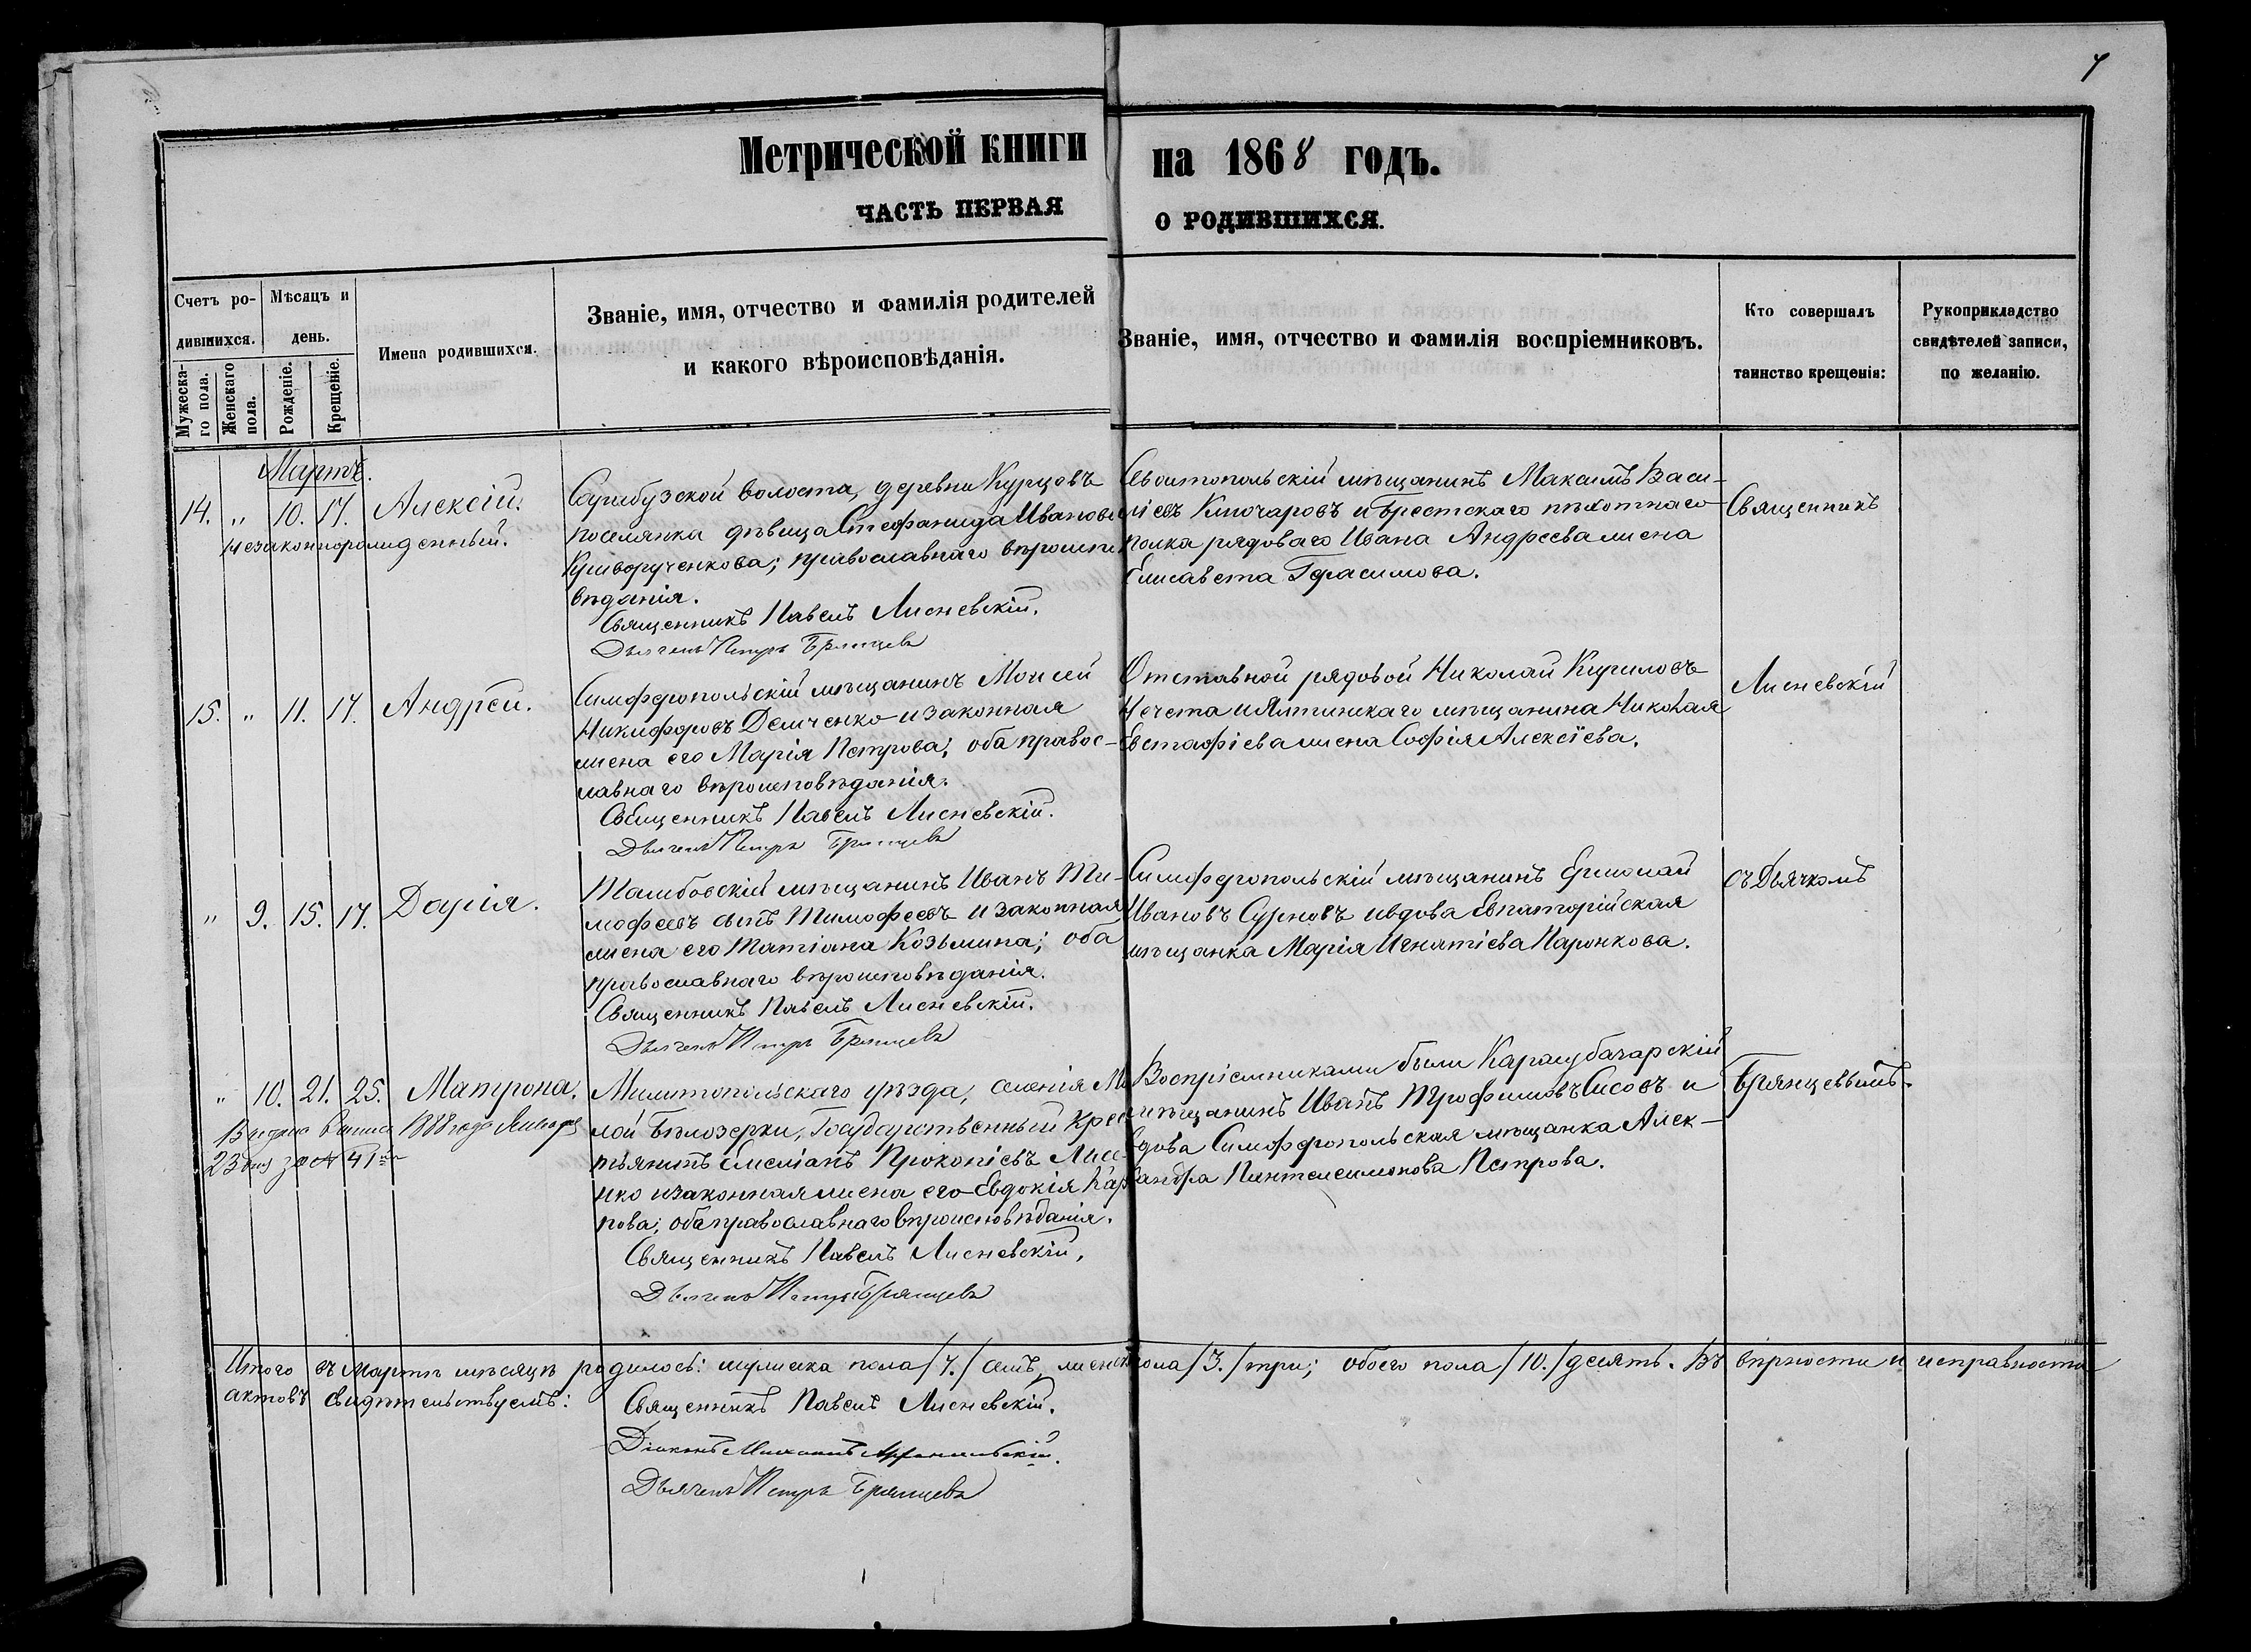 7
Метрической книги на 1868 годъ.
ЧАСТЬ ПЕРВАЯ О РОДИВШИХСЯ.
Счетъ ро-
дившихся.
Мужеска-
го пола.
Женскаго
пола.
Мѣсяцъ и
день.
Рожденіе.
Крещеніе.
Имена родившихся.
Званіе, имя, отчество и фамилія родителей
и какого вѣроисповѣданія.
Званіе, имя, отчество и фамилія воспріемниковъ.
Кто совершалъ
таинство крещенія:
Рукоприкладство
свидѣтелей записи,
по желанію.
Мартъ.
14. „ 10. 17. Алексій.
незаконнорожденный.
Сарабузской волости, деревни Курцовъ
поселянка дѣвица Стефанида Иванова
Криворученкова; православнаго вѣроиспо
вѣданія.
Священникъ Павелъ Лисневскій.
Дьячекъ Петръ Брянцевъ
Севастопольскій мѣщанинъ Максимъ Васи-
ліевъ Ключаровъ и Брестскаго пѣхотнаго
полка рядоваго Ивана Андреева жена
Елисавета Герасимова.
Священникъ
15. „ 11. 17. Андрей.
Симферопольскій мѣщанинъ Моисей
Никифоровъ Демченко и законная
жена его Марія Петрова; оба правос-
лавнаго вѣроисповѣданія.
Священникъ Павелъ Лисневскій.
Дьячекъ Петръ Брянцевъ
Отставной рядовой Николай Кириловъ
Нечета и Ялтинскаго мѣщанина Николая
Евстафіева жена Софія Алексіева.
Лисневскій
„ 9. 15. 17. Дарія.
Тамбовскій мѣщанинъ Иванъ Ти-
мофеевъ сынъ Тимофеевъ и законная
жена его Татіана Козьмина; оба
православнаго вѣроисповѣданія.
Священникъ Павелъ Лисневскій.
Дьячекъ Петръ Брянцевъ
Симферопольскій мѣщанинъ Ермолай
Ивановъ Сурновъ и вдова Евпаторійская
мѣщанка Марія Игнатіева Паронкова.
съ Дьячкомъ
„ 10. 21. 25. Матрона.
1888 года Января
23 дня за № 41
Милитопольскаго уѣзда, селенія Ма
лой Бѣлозерки, Государственный Крес
тьянинъ Емеліанъ Прокопіевъ Лисе-
нко и законная жена его Евдокія Кар
пова; оба православнаго вѣроисповѣданія.
Священникъ Павелъ Лисневскій,
Дьячекъ Петръ Брянцевъ
Воспріемниками были Карасубазарскій
мѣщанинъ Иванъ Трофимовъ Сисовъ и
вдова Симферопольская мѣщанка Алек-
сандра Пантелеимонова Петрова.
Брянцевымъ.
Итого въ Мартѣ мѣсяцѣ родилось: мужеска пола /7./ семь, женска пола /3./ три; обоего пола /10./ десять. Въ вѣрности и исправности
актовъ свидѣтельствуемъ:
Священникъ Павелъ Лисневскій.
Діаконъ Михаилъ
Дьячекъ Петръ Брянцевъ